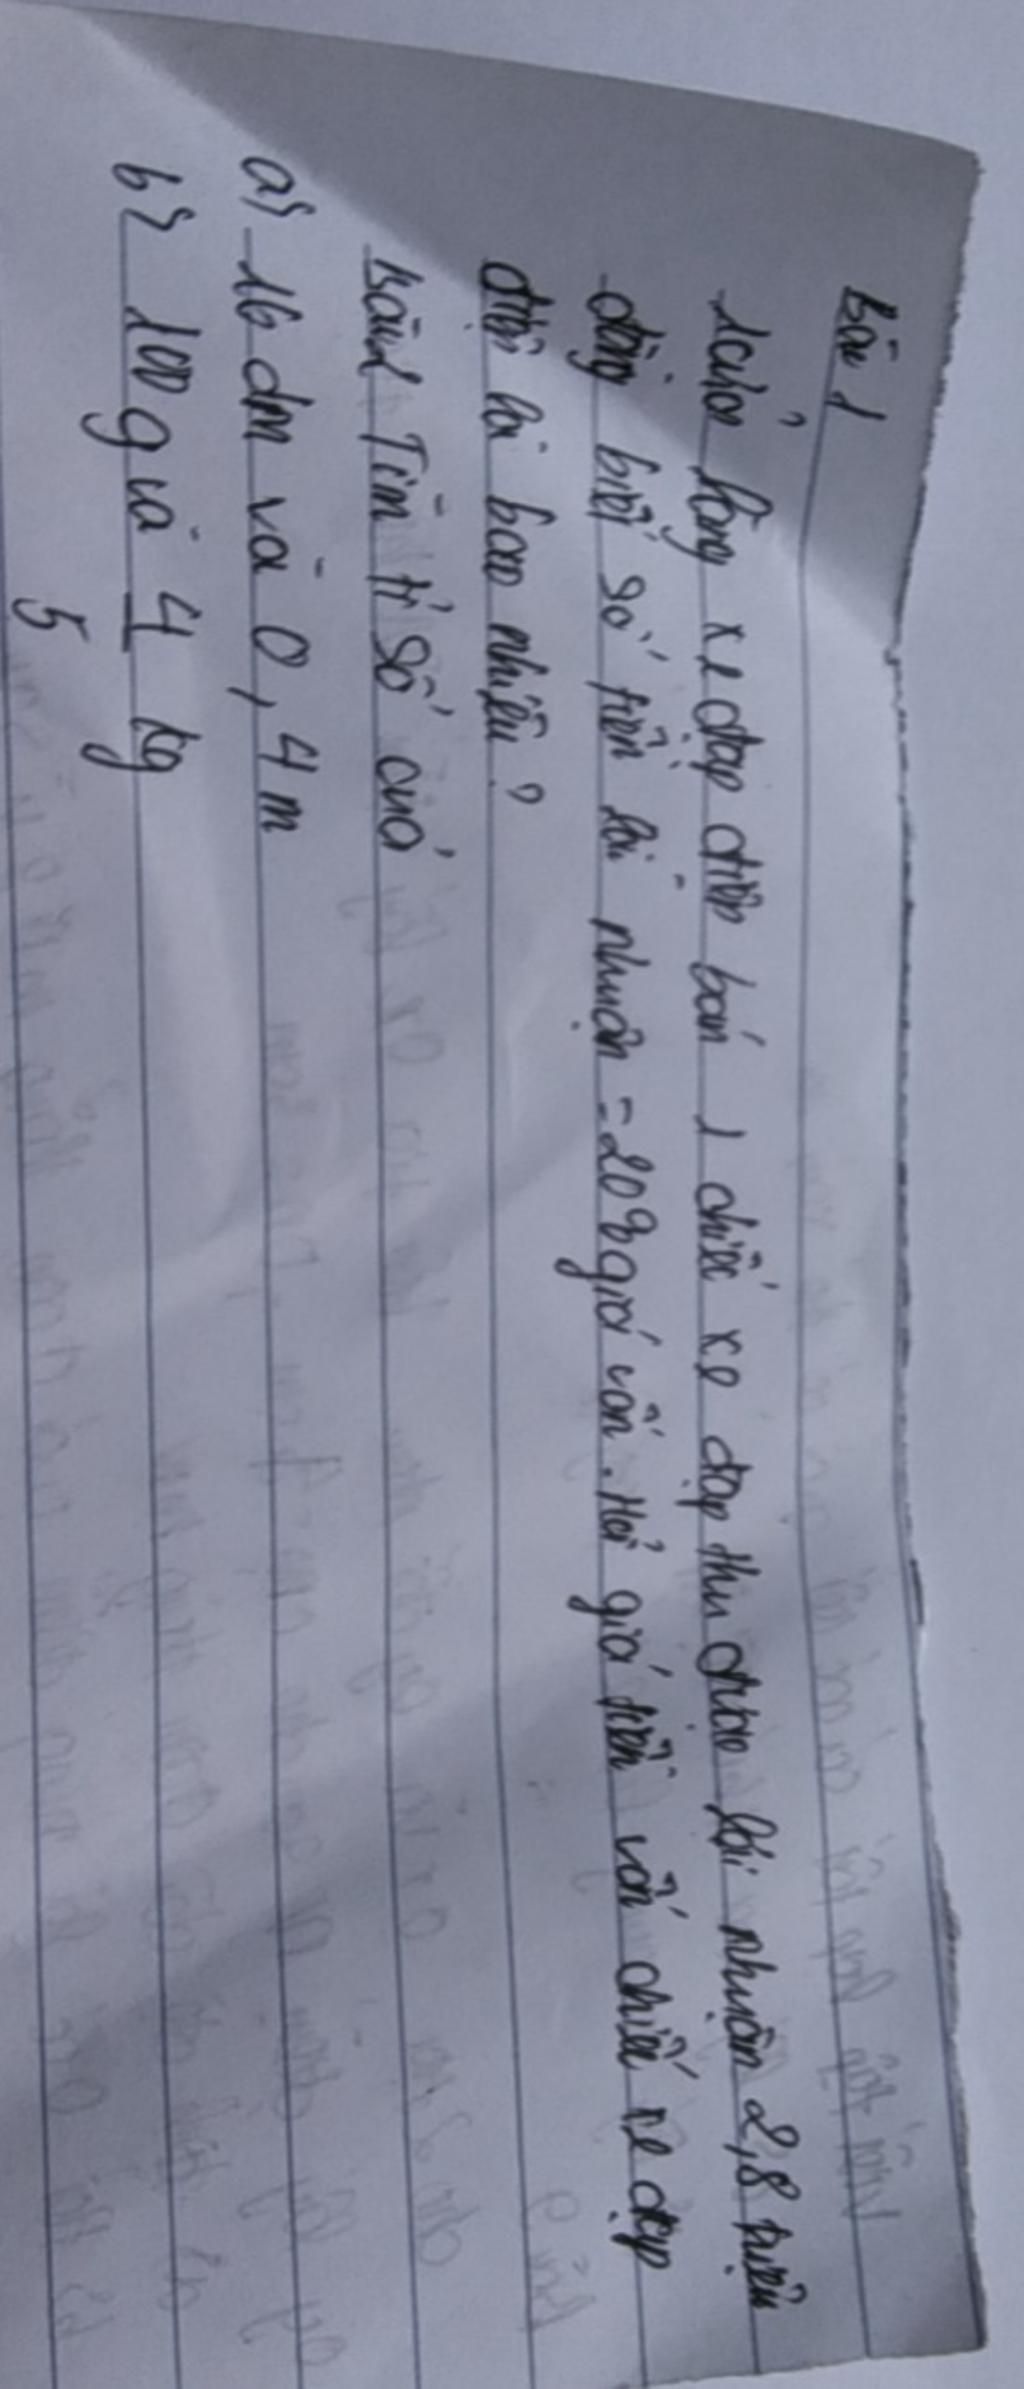 Bài 1
1 cửa hàng xe đạp điện bán 1 chiếc xe đạp thu được lãi nhuận 2,8 triệu
đồng biết số tiền lãi nhuận = 20% giá vốn. Hỏi giá tiền vốn chiếc xe đạp
điện là bao nhiêu?
Bài 2 Tìm tỉ số của
a) 16 dm và 0,4 m
b) 100 g và 4/5 kg